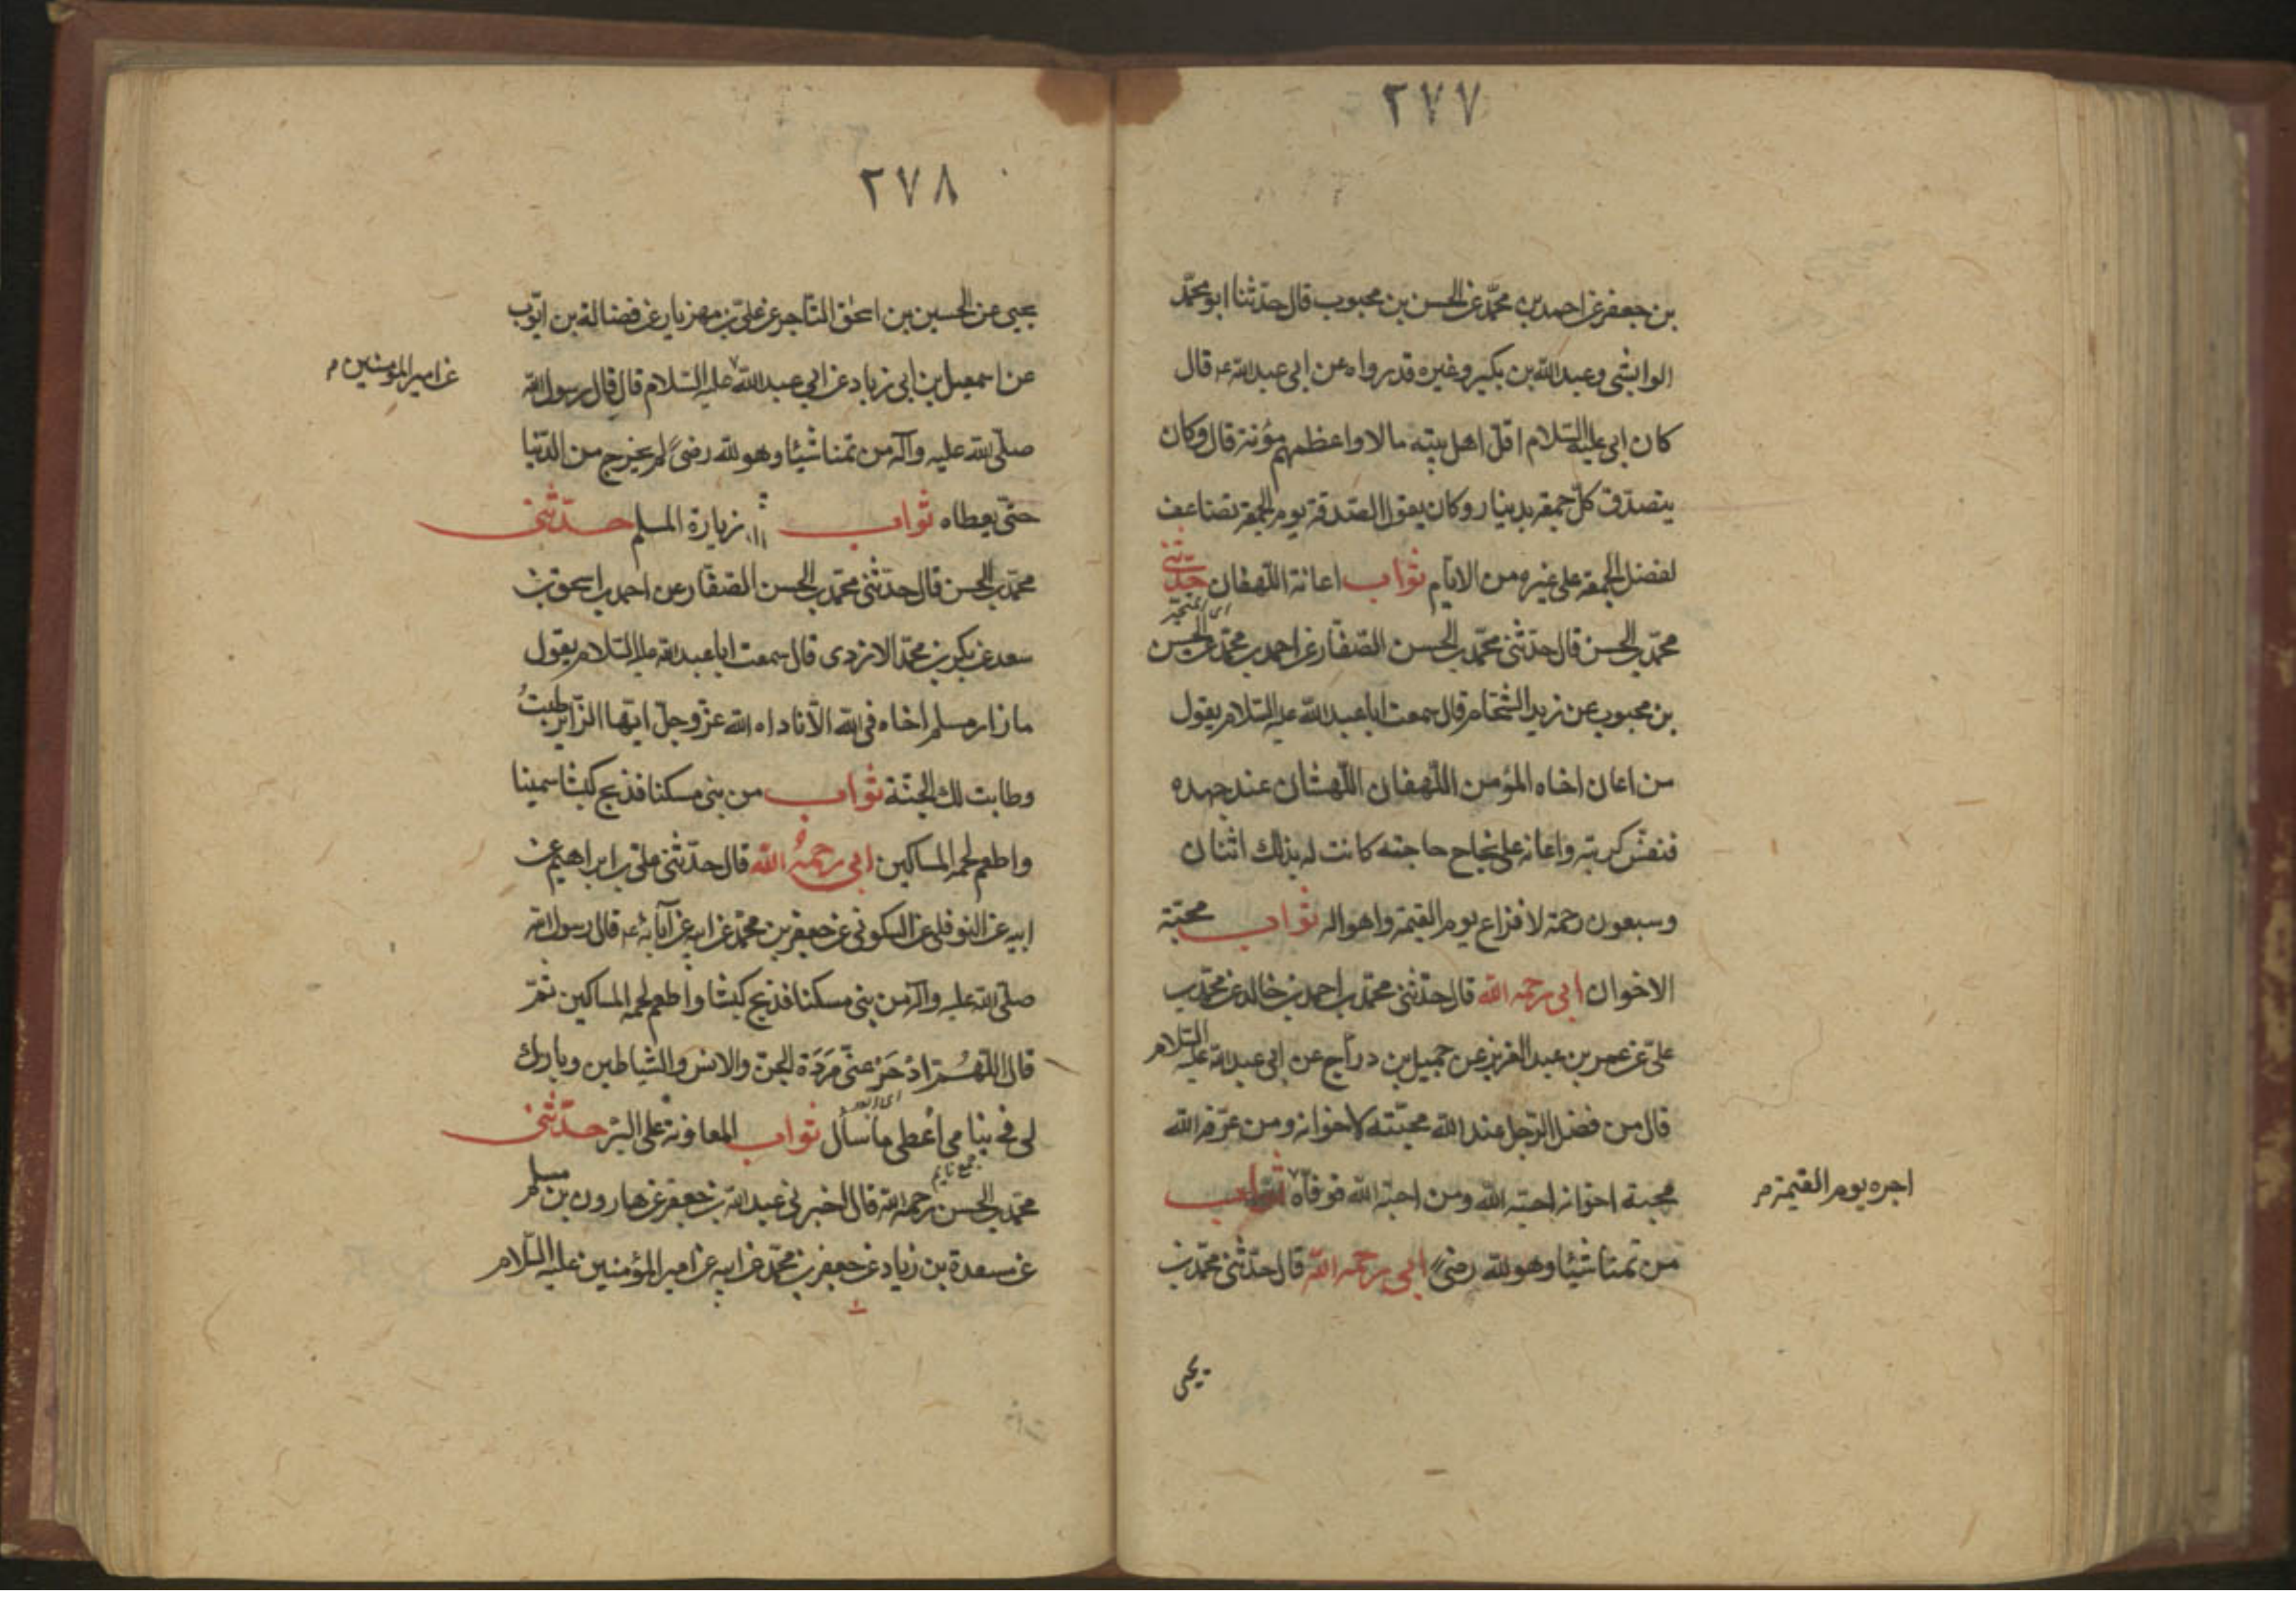 ٢٧٧
بن جعفر عن احمد بن محمّد عن الحسن بن محبوب قال حدّثنا ابو محمّد
الوابشى وعبد الله بن بكير وغيره قد رواه عن ابى عبد الله ع قال
كان ابى عليه السّلام اقلّ اهل بيته مالا واعظمهم مؤنة قال وكان
يتصدّق كلّ جمعة بدينار وكان يقول الصّدقة يوم الجمعة تضاعف
لفضل الجمعة على غيره من الايّام ثواب اعانة اللّهفان حدّثنى
محمّد بن الحسن قال حدّثنى محمّد بن الحسن الصّفّار عن احمد بن محمّد عن الحسن
بن محبوب عن زيد الشّحّام قال سمعت ابا عبد الله عليه السّلام يقول
من اعان اخاه المؤمن اللّهفان اللّهثان عند جهده
فنفّس كربته واعانه على نجاح حاجته كانت له بذلك اثنتان
وسبعون رحمة لافزاع يوم القيمة واهواله ثواب محبّة
الاخوان ابى رحمه الله قال حدّثنى محمّد بن احمد بن خالد عن محمّد بن
علىّ عن عمر بن عبد العزيز عن جميل بن درّاج عن ابى عبد الله عليه السّلام
قال من فضل الرّجل عند الله محبّته لاخوانه ومن عرّفه الله
محبة اخوانه احبّه الله ومن احبّه الله فوفاه ثواب
اجره يوم القيمة م
من تمنا شيئا وهو لله رضىً ابى رحمه الله قال حدّثنى محمّد بن
يحيى
٢٧٨
يحيى عن الحسين بن اسحٰق التّاجر عن علىّ بن مهزيار عن فضالة بن ايّوب
عن اسمعيل بن ابى زياد عن ابى عبد الله عليه السّلام قال قال رسول الله
عن امير المؤمنين م
صلّى الله عليه وآله من تمنا شيئا وهو لله رضىً لم يخرج من الدّنيا
حتّى يعطاه ثواب زيارة المسلم حدّثنى
محمّد بن الحسن قال حدّثنى محمّد بن الحسن الصّفّار عن احمد بن اسحق بن
سعد عن بكر بن محمّد الازدى قال سمعت ابا عبد الله عليه السّلام يقول
ما زار مسلم اخاه فى الله الّا ناداه الله عزّ وجلّ ايّها الزّاير طبتُ
وطابت لك الجنّة ثواب من بنى مسكنا فذبح كبشا سمينا
واطعم لحمه المساكين ابى رحمهُ الله قال حدّثنى علىّ بن ابراهيم عن
ابيه عن النوفلى عن السكونى عن جعفر بن محمّد عن ابيه عن آبائه ع قال رسول الله
صلّى الله عليه وآله من بنى مسكنا فذبح كبشا واطعم لحمه المساكين ثمّ
قال اللّهُمّ ادْحَرْ عنّى مَرَدَة الجنّ والانس والشّياطين وبارك
لى فى بنائى أعطى ما سأل ثواب المعاونة على البرّ حدّثنى
محمّد بن الحسن رحمه الله قال اخبرنى عبد الله بن جعفر عن هارون بن مسلم
عن مسعدة بن زياد عن جعفر بن محمّد عن ابيه عن امير المؤمنين عليه السّلام